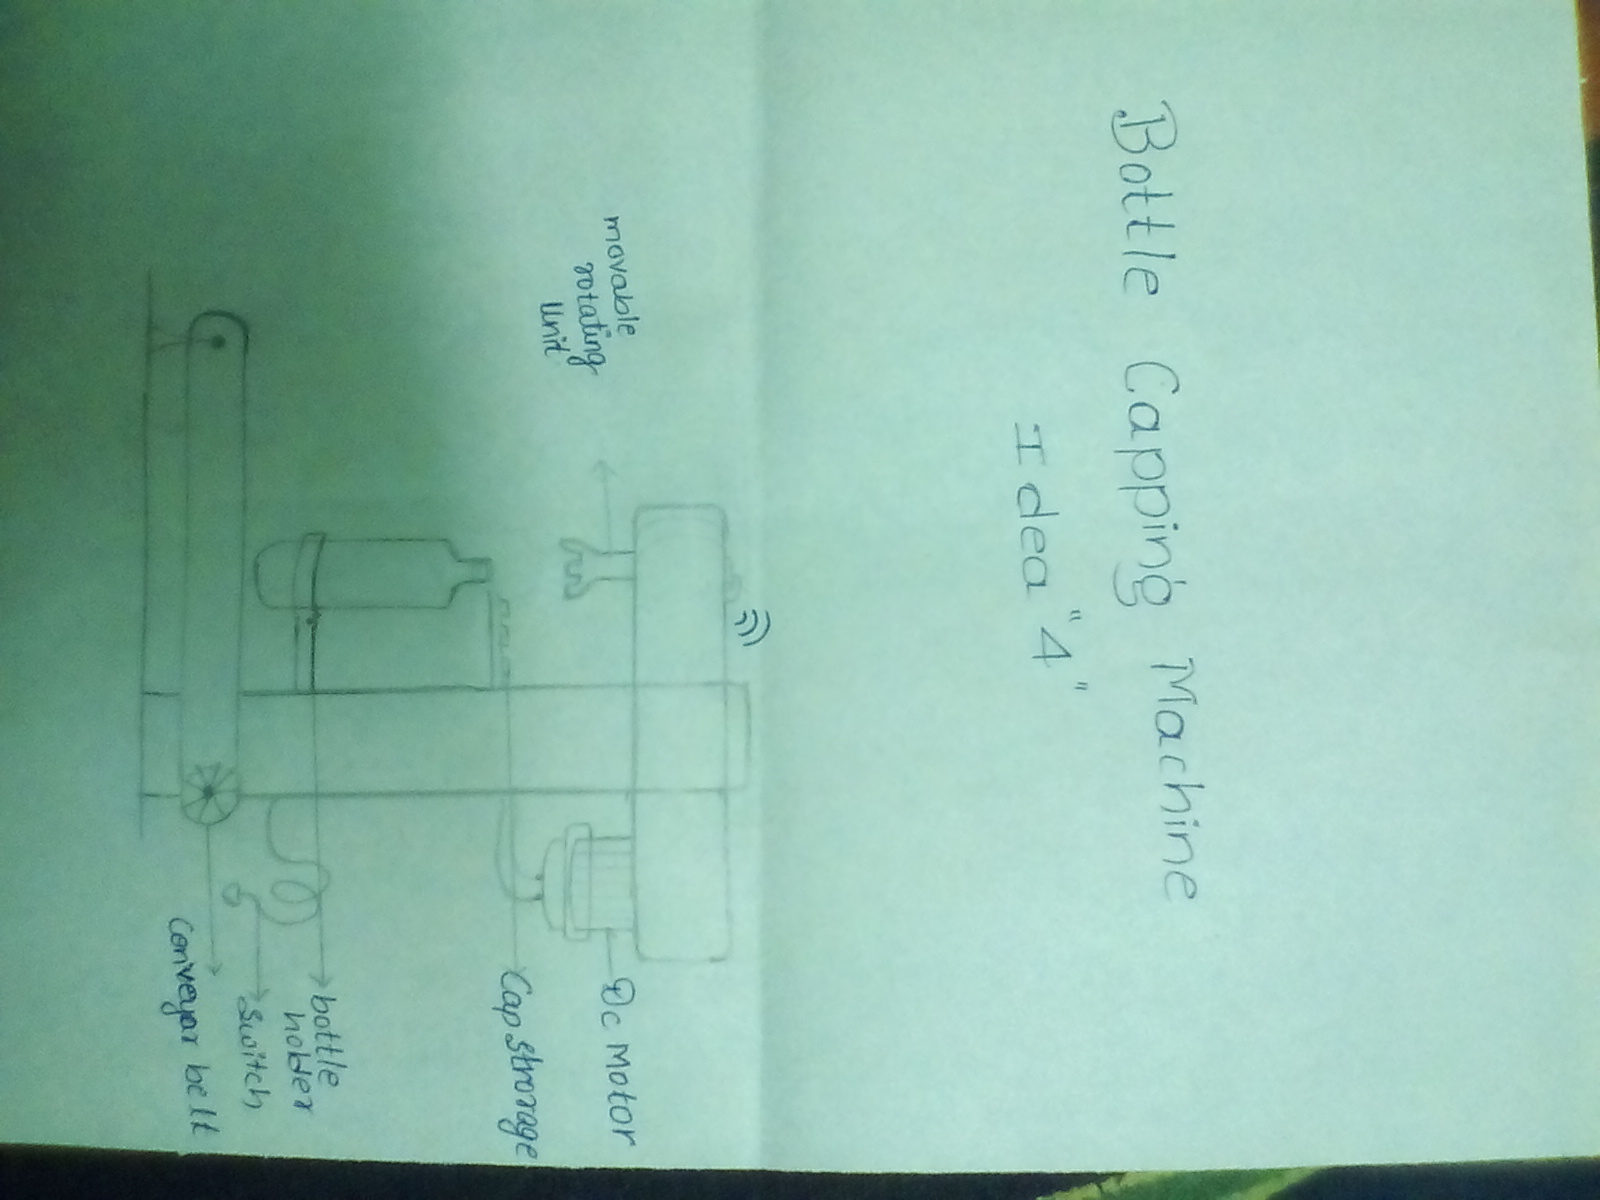 Bottle Capping Machine
Idea "4"
movable
rotating
Unit
Dc Motor
Cap strorage
bottle
holder
Switch
Conveyar belt